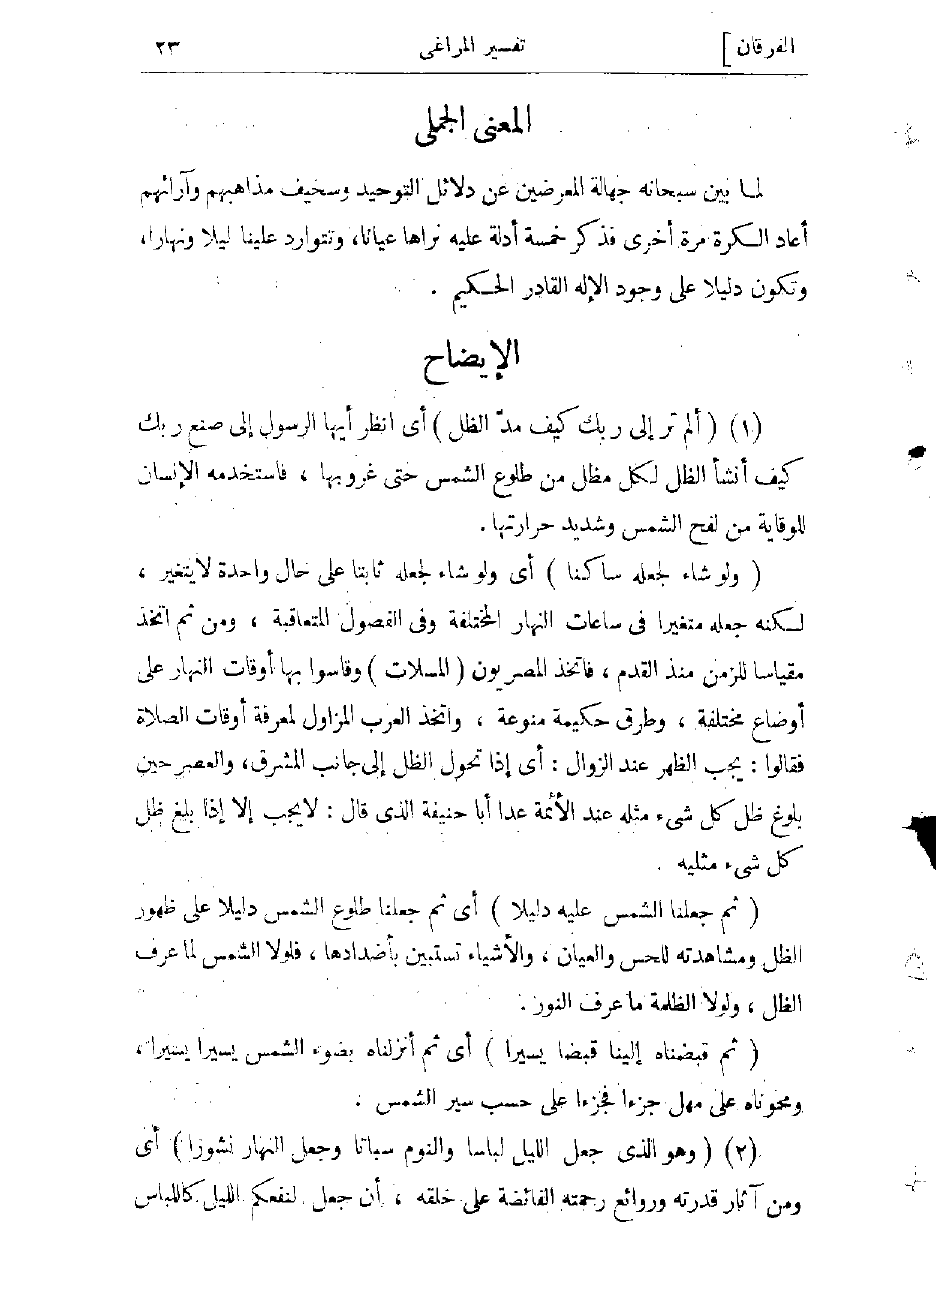 الفرقان] تفسير المراغى ٢٣
المعنى الجملى
لما بين سبحانه جهالة المعرضين عن دلائل التوحيد وسخيف مذاهبهم وآرائهم
أعاد الكرة مرة أخرى فذكر خمسة أدلة عليه نراها عيانا، وتتوارد علينا ليلا ونهارا،
وتكون دليلا على وجود الإله القادر الحكيم .
الإيضاح
(١) ( ألم تر إلى ربك كيف مدّ الظل ) أى انظر أيها الرسول إلى صنع ربك
كيف أنشأ الظل لكل مظل من طلوع الشمس حتى غروبها ، فاستخدمه الإنسان
للوقاية من لفح الشمس وشديد حرارتها .
( ولو شاء لجعله ساكنا ) أى ولو شاء لجعله ثابتا على حال واحدة لا يتغير ،
لكنه جعله متغيرا فى ساعات النهار المختلفة وفى الفصول المتعاقبة ، ومن ثم اتخذ
مقياسا للزمن منذ القدم ، فاتخذ المصريون ( المسلات ) وقاسوا بها أوقات النهار على
أوضاع مختلفة ، وطرق حكيمة منوعة ، واتخذ العرب المزاول لمعرفة أوقات الصلاة
فقالوا : يجب الظهر عند الزوال : أى إذا تحول الظل إلى جانب المشرق، والعصر حين
بلوغ ظل كل شىء مثله عند الأئمة عدا أبا حنيفة الذى قال : لا يجب إلا إذا بلغ ظل
كل شىء مثليه .
( ثم جعلنا الشمس عليه دليلا ) أى ثم جعلنا طلوع الشمس دليلا على ظهور
الظل ومشاهدته للحس والعيان ، والأشياء تستبين بأضدادها ، فلولا الشمس لما عرف
الظل ، ولولا الظلمة ما عرف النور .
( ثم قبضناه إلينا قبضا يسيرا ) أى ثم أنزلناه بضوء الشمس يسيرا يسيرا ،
ومحوناه على مهل جزءا فجزءا على حسب سير الشمس .
(٢) ( وهو الذى جعل الليل لباسا والنوم سباتا وجعل النهار نشورا ) أى
ومن آثار قدرته وروائع رحمته الفائضة على خلقه ، أن جعل لنفعكم الليل كاللباس